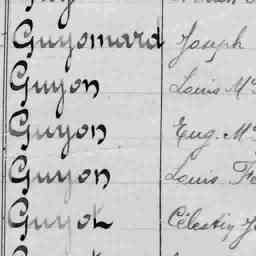 Guyomard Joseph
Guyon Louis M
Guyon Eug. M
Guyon Louis F
Guyot Célestin J